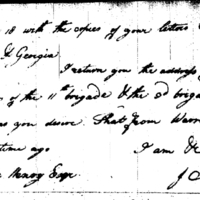 18 with the copies of your letters
& Georgia
I return you the address
of the 11th brigade & the 3d brigade
you desire That from Warr
time ago I am &c
Henry Esqr
J